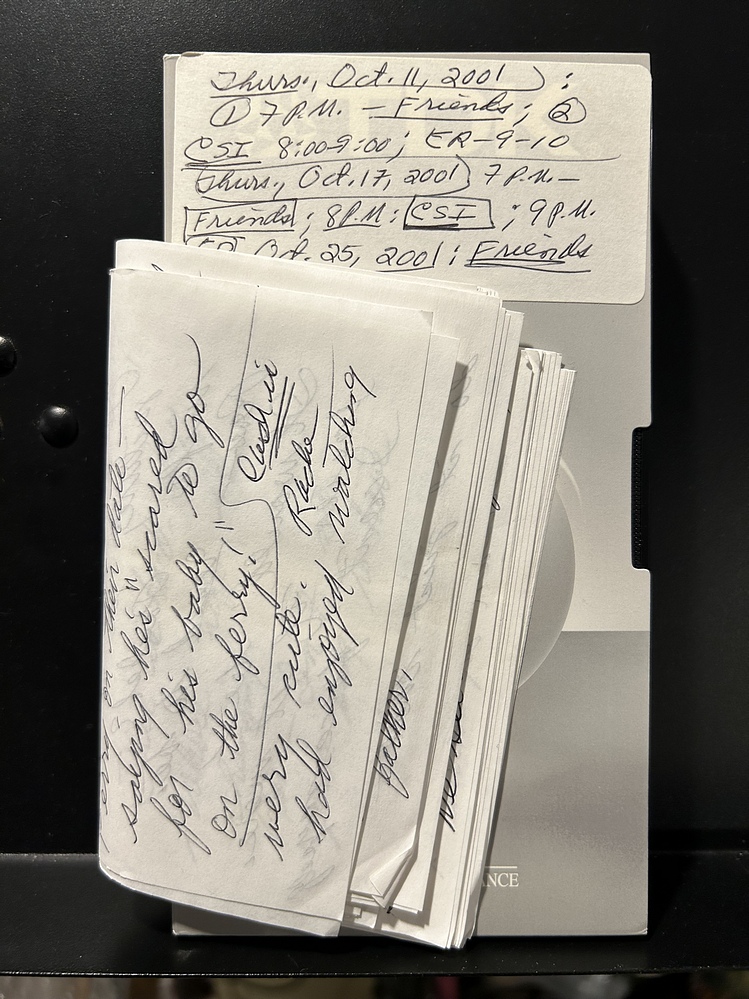 Thurs., Oct. 11, 2001 ) :
① 7 P.M. – Friends ; ②
CSI 8:00-9:00 ; ER-9-10
Thurs., Oct. 17, 2001) 7 P.M. –
Friends ; 8 P.M : CSI ; 9 P.M.
ER Oct. 25, 2001 : Friends
on their date —
saying he's "scared
for his baby to go
on the ferry!"
very cute.
had enjoyed watching
father.
ANCE